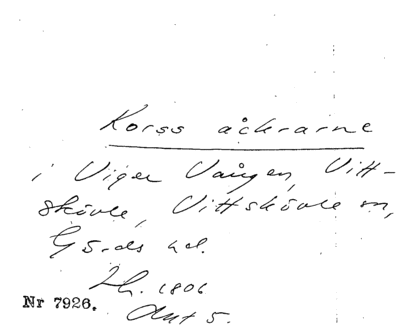 Korss åckrarne
i Viger Vången, Vitt-
skövle, Vittskövle sn,
Gärds hd.
1806
Akt 5.
Nr 7926.